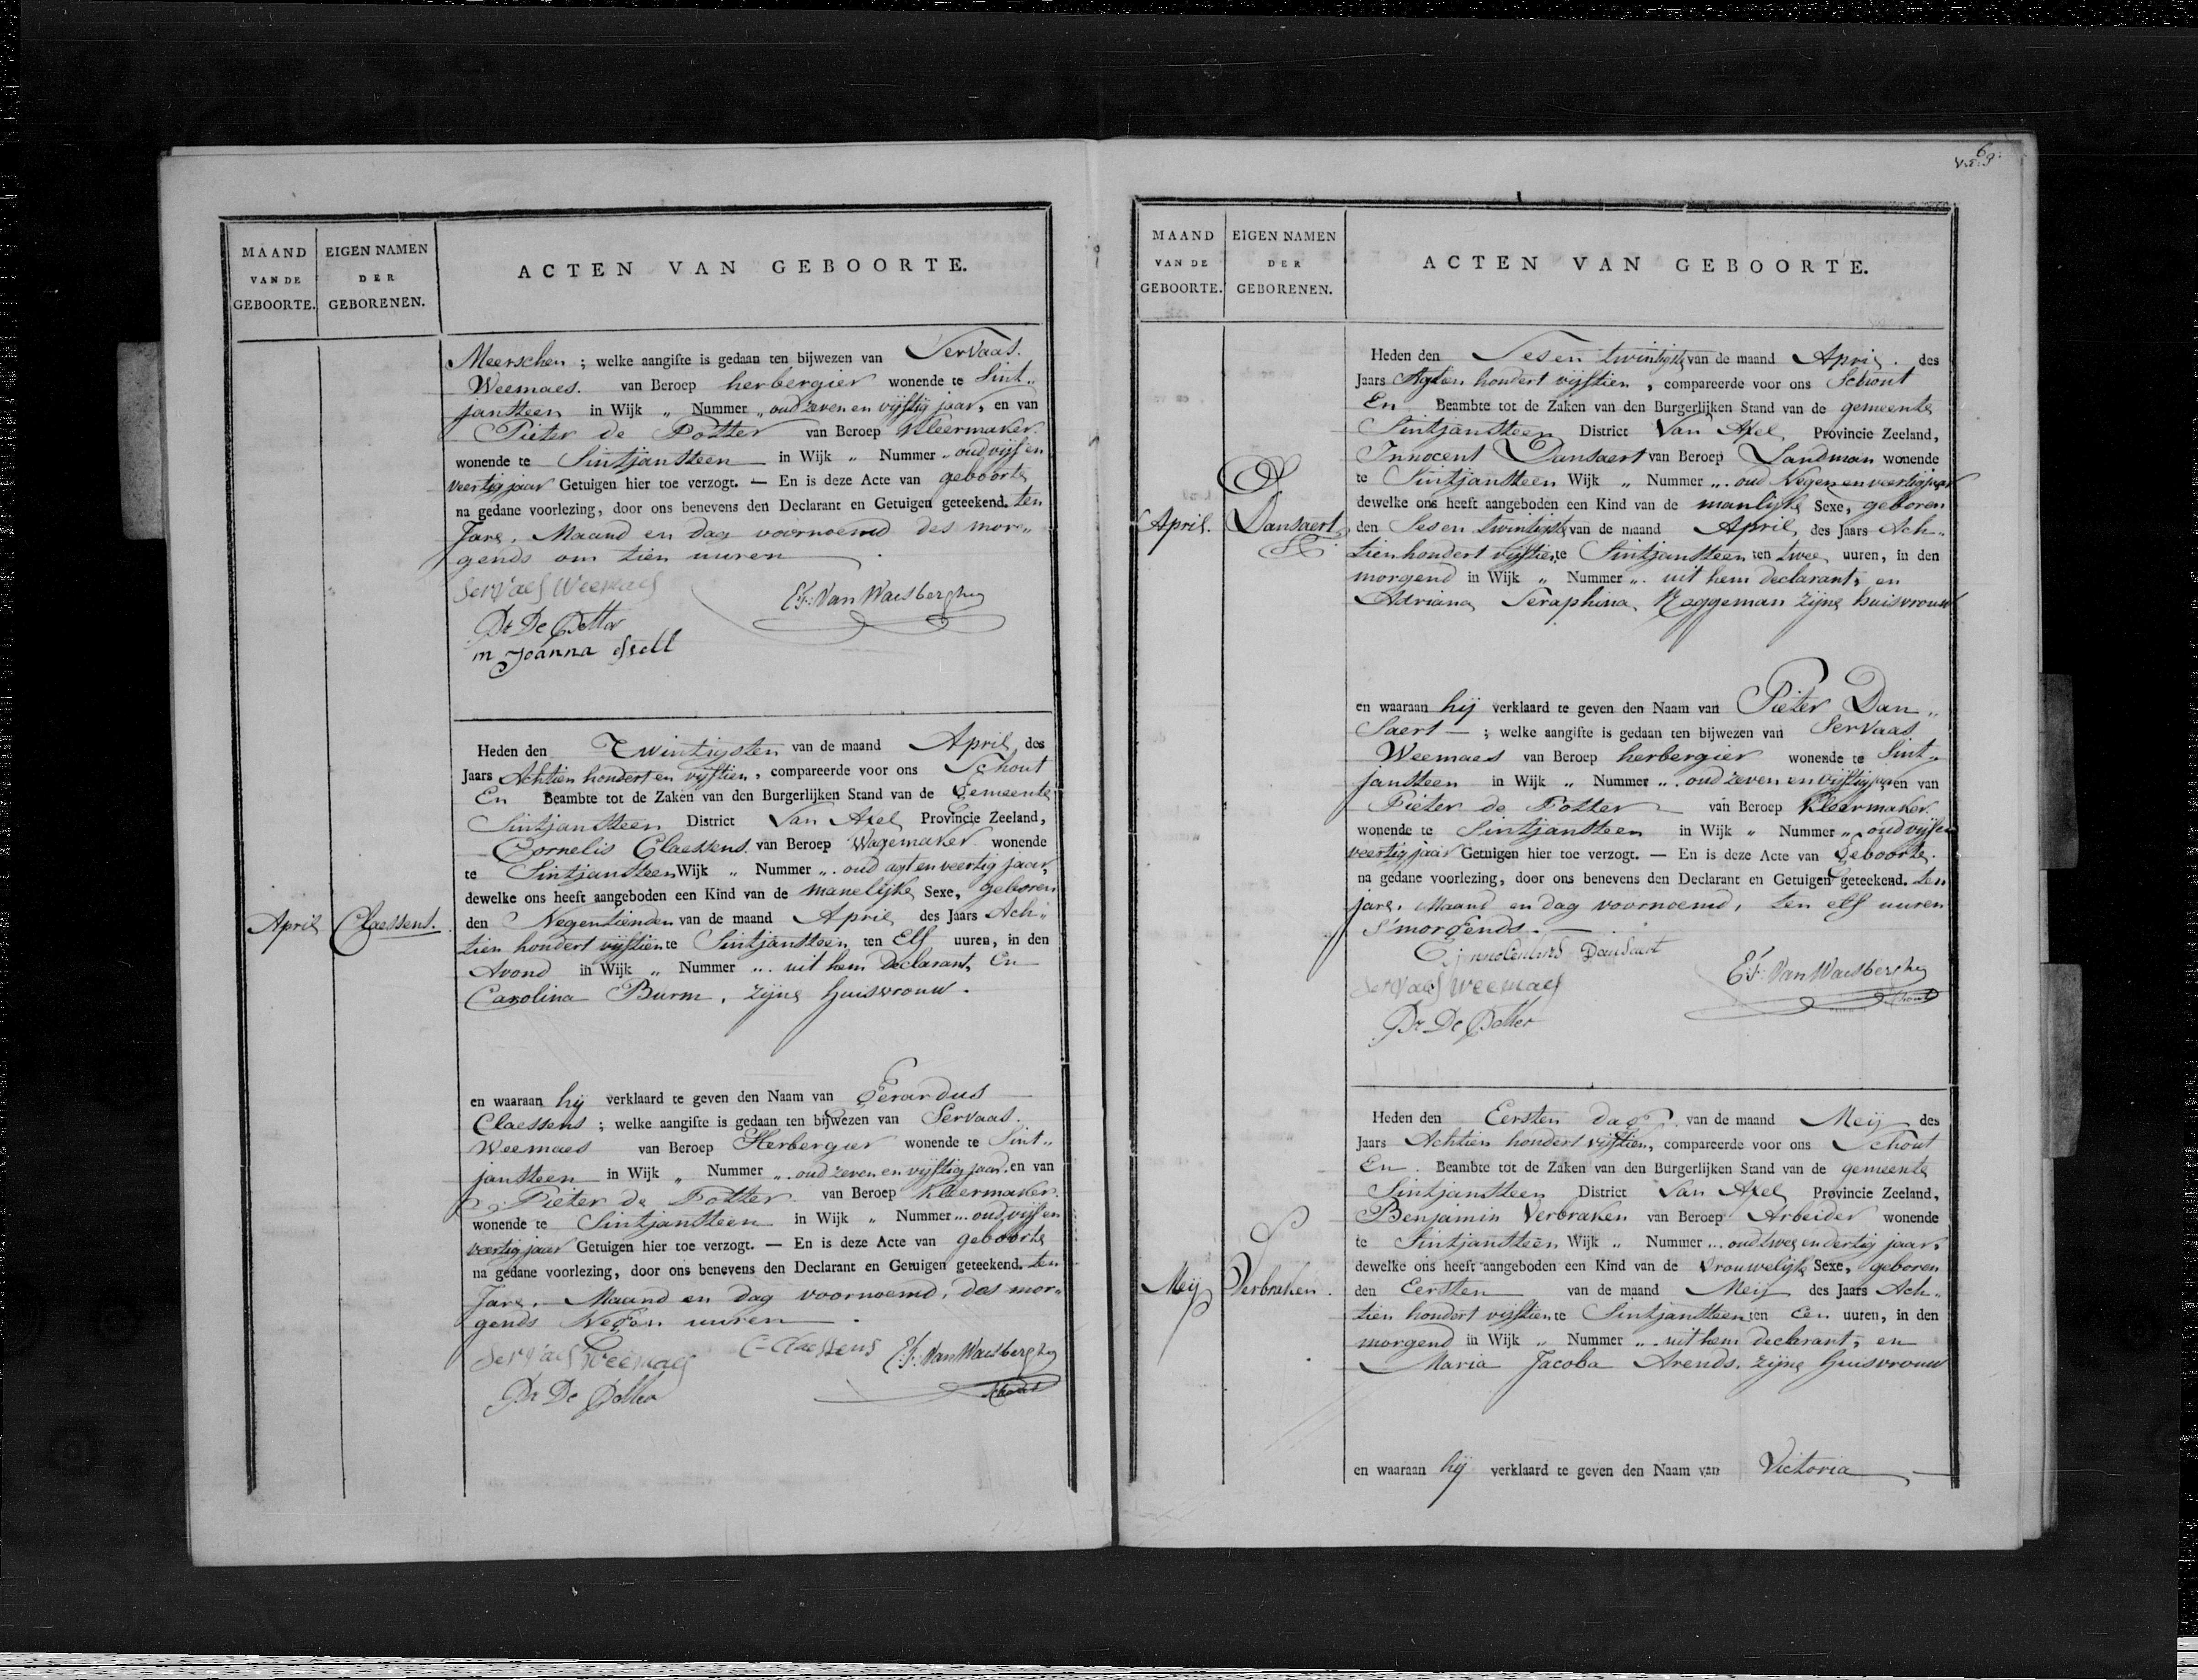 MAAND
VAN DE
GEBOORTE.
EIGEN NAMEN
DER
GEBORENEN.
ACTEN VAN GEBOORTE.
Meerschen ; welke aangifte is gedaan ten bijwezen van Servaas.
Weemaes. van Beroep herbergier wonende te Sint„
jansteen in Wijk „ Nummer „ oud zeven en vijftig jaar, en van
Pieter de Potter van Beroep Kleermaker.
wonende te Sintjansteen in Wijk „ Nummer „ oud vijf en
veertig jaar Getuigen hier toe verzogt. — En is deze Acte van geboorte
na gedane voorlezing, door ons benevens den Declarant en Getuigen geteekend. ten
Jare, Maand en dag voornoemd des mor„
gends om tien uuren
Servaes Weemaes
E.F. Van Waesberghe
Pr De Potter
m Joanna
April
Claessens.
Heden den Twintigsten van de maand April, des
Jaars Achtien hondert en vijftien, compareerde voor ons Schout
En Beambte tot de Zaken van den Burgerlijken Stand van de Gemeente
Sintjansteen District Van Axel Provincie Zeeland,
Cornelis Claessens. van Beroep Wagemaker wonende
te Sintjansteen Wijk „ Nummer „. oud agt en veertig jaar,
dewelke ons heeft aangeboden een Kind van de manelijke Sexe, geboren
den Negentienden van de maand April des Jaars Ach„
tien hondert vijftien te Sintjansteen ten Elf uuren, in den
Avond in Wijk „ Nummer „. uit hem Declarant, En
Carolina Burm, zijne huisvrouw.
en waaraan hij verklaard te geven den Naam van Gerardus
Claessens ; welke aangifte is gedaan ten bijwezen van Servaas.
Weemaes van Beroep Herbergier wonende te Sint„
jansteen in Wijk „ Nummer „. oud zeven en vijftig jaar. en van
Pieter de Potter van Beroep Kleermaker.
wonende te Sintjansteen in Wijk „ Nummer „. oud vijf en
veertig jaar Getuigen hier toe verzogt. — En is deze Acte van geboorte
na gedane voorlezing, door ons benevens den Declarant en Getuigen geteekend. ten
Jare, Maand en dag voornoemd, des mor„
gends Negen uuren
Servaes Weemaes C Claessens E.F. Van Waesberghe
Schout
Pr De Potter
MAAND
VAN DE
GEBOORTE.
EIGEN NAMEN
DER
GEBORENEN.
ACTEN VAN GEBOORTE.
April.
Dansaert
Heden den Sesen twintigste van de maand April. des
Jaars Agtien hondert vijftien, compareerde voor ons Schout
En Beambte tot de Zaken van den Burgerlijken Stand van de gemeente
Sintjansteen District Van Axel Provincie Zeeland,
Innocent Dansaert van Beroep Landman wonende
te Sintjansteen Wijk „ Nummer „. oud Negen en veertig jaar
dewelke ons heeft aangeboden een Kind van de manlijke Sexe, geboren
den Sesen twintigste van de maand April, des Jaars Ach„
tien hondert vijftien te Sintjansteen ten twee uuren, in den
morgend in Wijk „ Nummer „. uit hem declarant, en
Adriana Seraphina Roggeman zijne huisvrouw
en waaraan hij verklaard te geven den Naam van Pieter Dan„
Saert — ; welke aangifte is gedaan ten bijwezen van Servaas
Weemaes van Beroep herbergier wonende te Sint„
jansteen in Wijk „ Nummer „. oud zeven en vijftig jaar en van
Pieter de Potter van Beroep Kleermaker.
wonende te Sintjansteen in Wijk „ Nummer „. oud vijf en
veertig jaar Getuigen hier toe verzogt. — En is deze Acte van Geboorte.
na gedane voorlezing, door ons benevens den Declarant en Getuigen geteekend. ten
jare, Maand en dag voornoemd, ten elf uuren
S'morgends.
Dansaert
E.F. Van Waesberghe
Schout
Servaes Weemaes
Pr De Potter
Meij
Verbraken.
Heden den Eersten dag van de maand Meij des
Jaars Achtien hondert vijftien, compareerde voor ons Schout
En. Beambte tot de Zaken van den Burgerlijken Stand van de gemeente
Sintjansteen District Van Axel Provincie Zeeland,
Benjamin Verbraken van Beroep Arbeider wonende
te Sintjansteen Wijk „ Nummer „. oud twee en dertig jaar,
dewelke ons heeft aangeboden een Kind van de Vrouwelijke Sexe, geboren
den Eersten van de maand Meij des Jaars Ach„
tien hondert vijftien te Sintjansteen ten Een uuren, in den
morgend in Wijk „ Nummer „. uit hem declarant, en
Maria Jacoba Arends. zijne huisvrouw
en waaraan hij verklaard te geven den Naam van Victoria